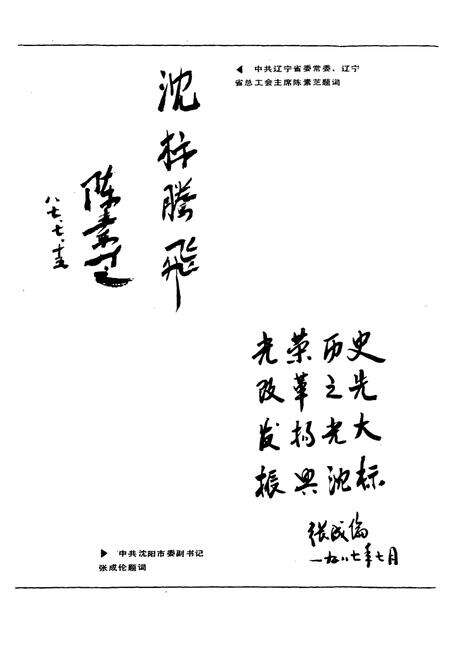 中共辽宁省委常委、辽宁
省总工会主席陈素芝题词
沈标腾飞
陈素芝
八七、七、十五
光荣历史
改革之先
发扬光大
振兴沈标
张成伦
一九八七年七月
中共沈阳市委副书记
张成伦题词